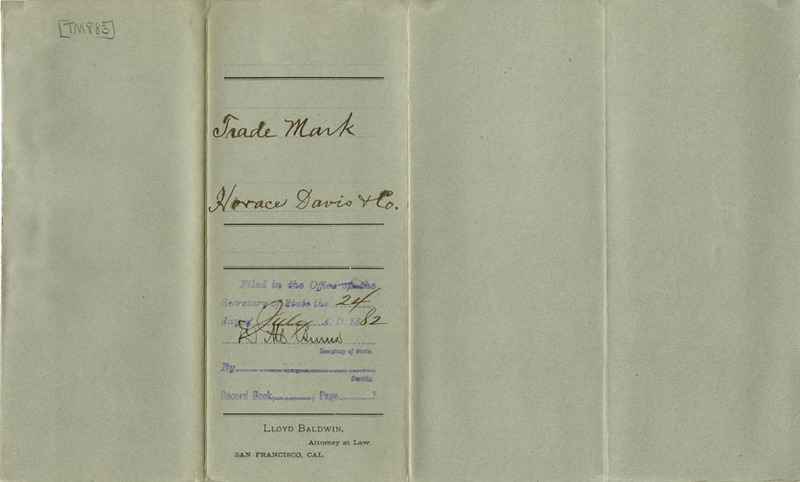 [TM883]
Trade Mark
Horace Davis & Co.
Filed in the Office of the
Secretary of State the 24
day of July A. D. 1882
D. M. Burns
Secretary of State.
By
Deputy.
Record Book, ; Page
LLOYD BALDWIN,
Attorney at Law.
SAN FRANCISCO, CAL.